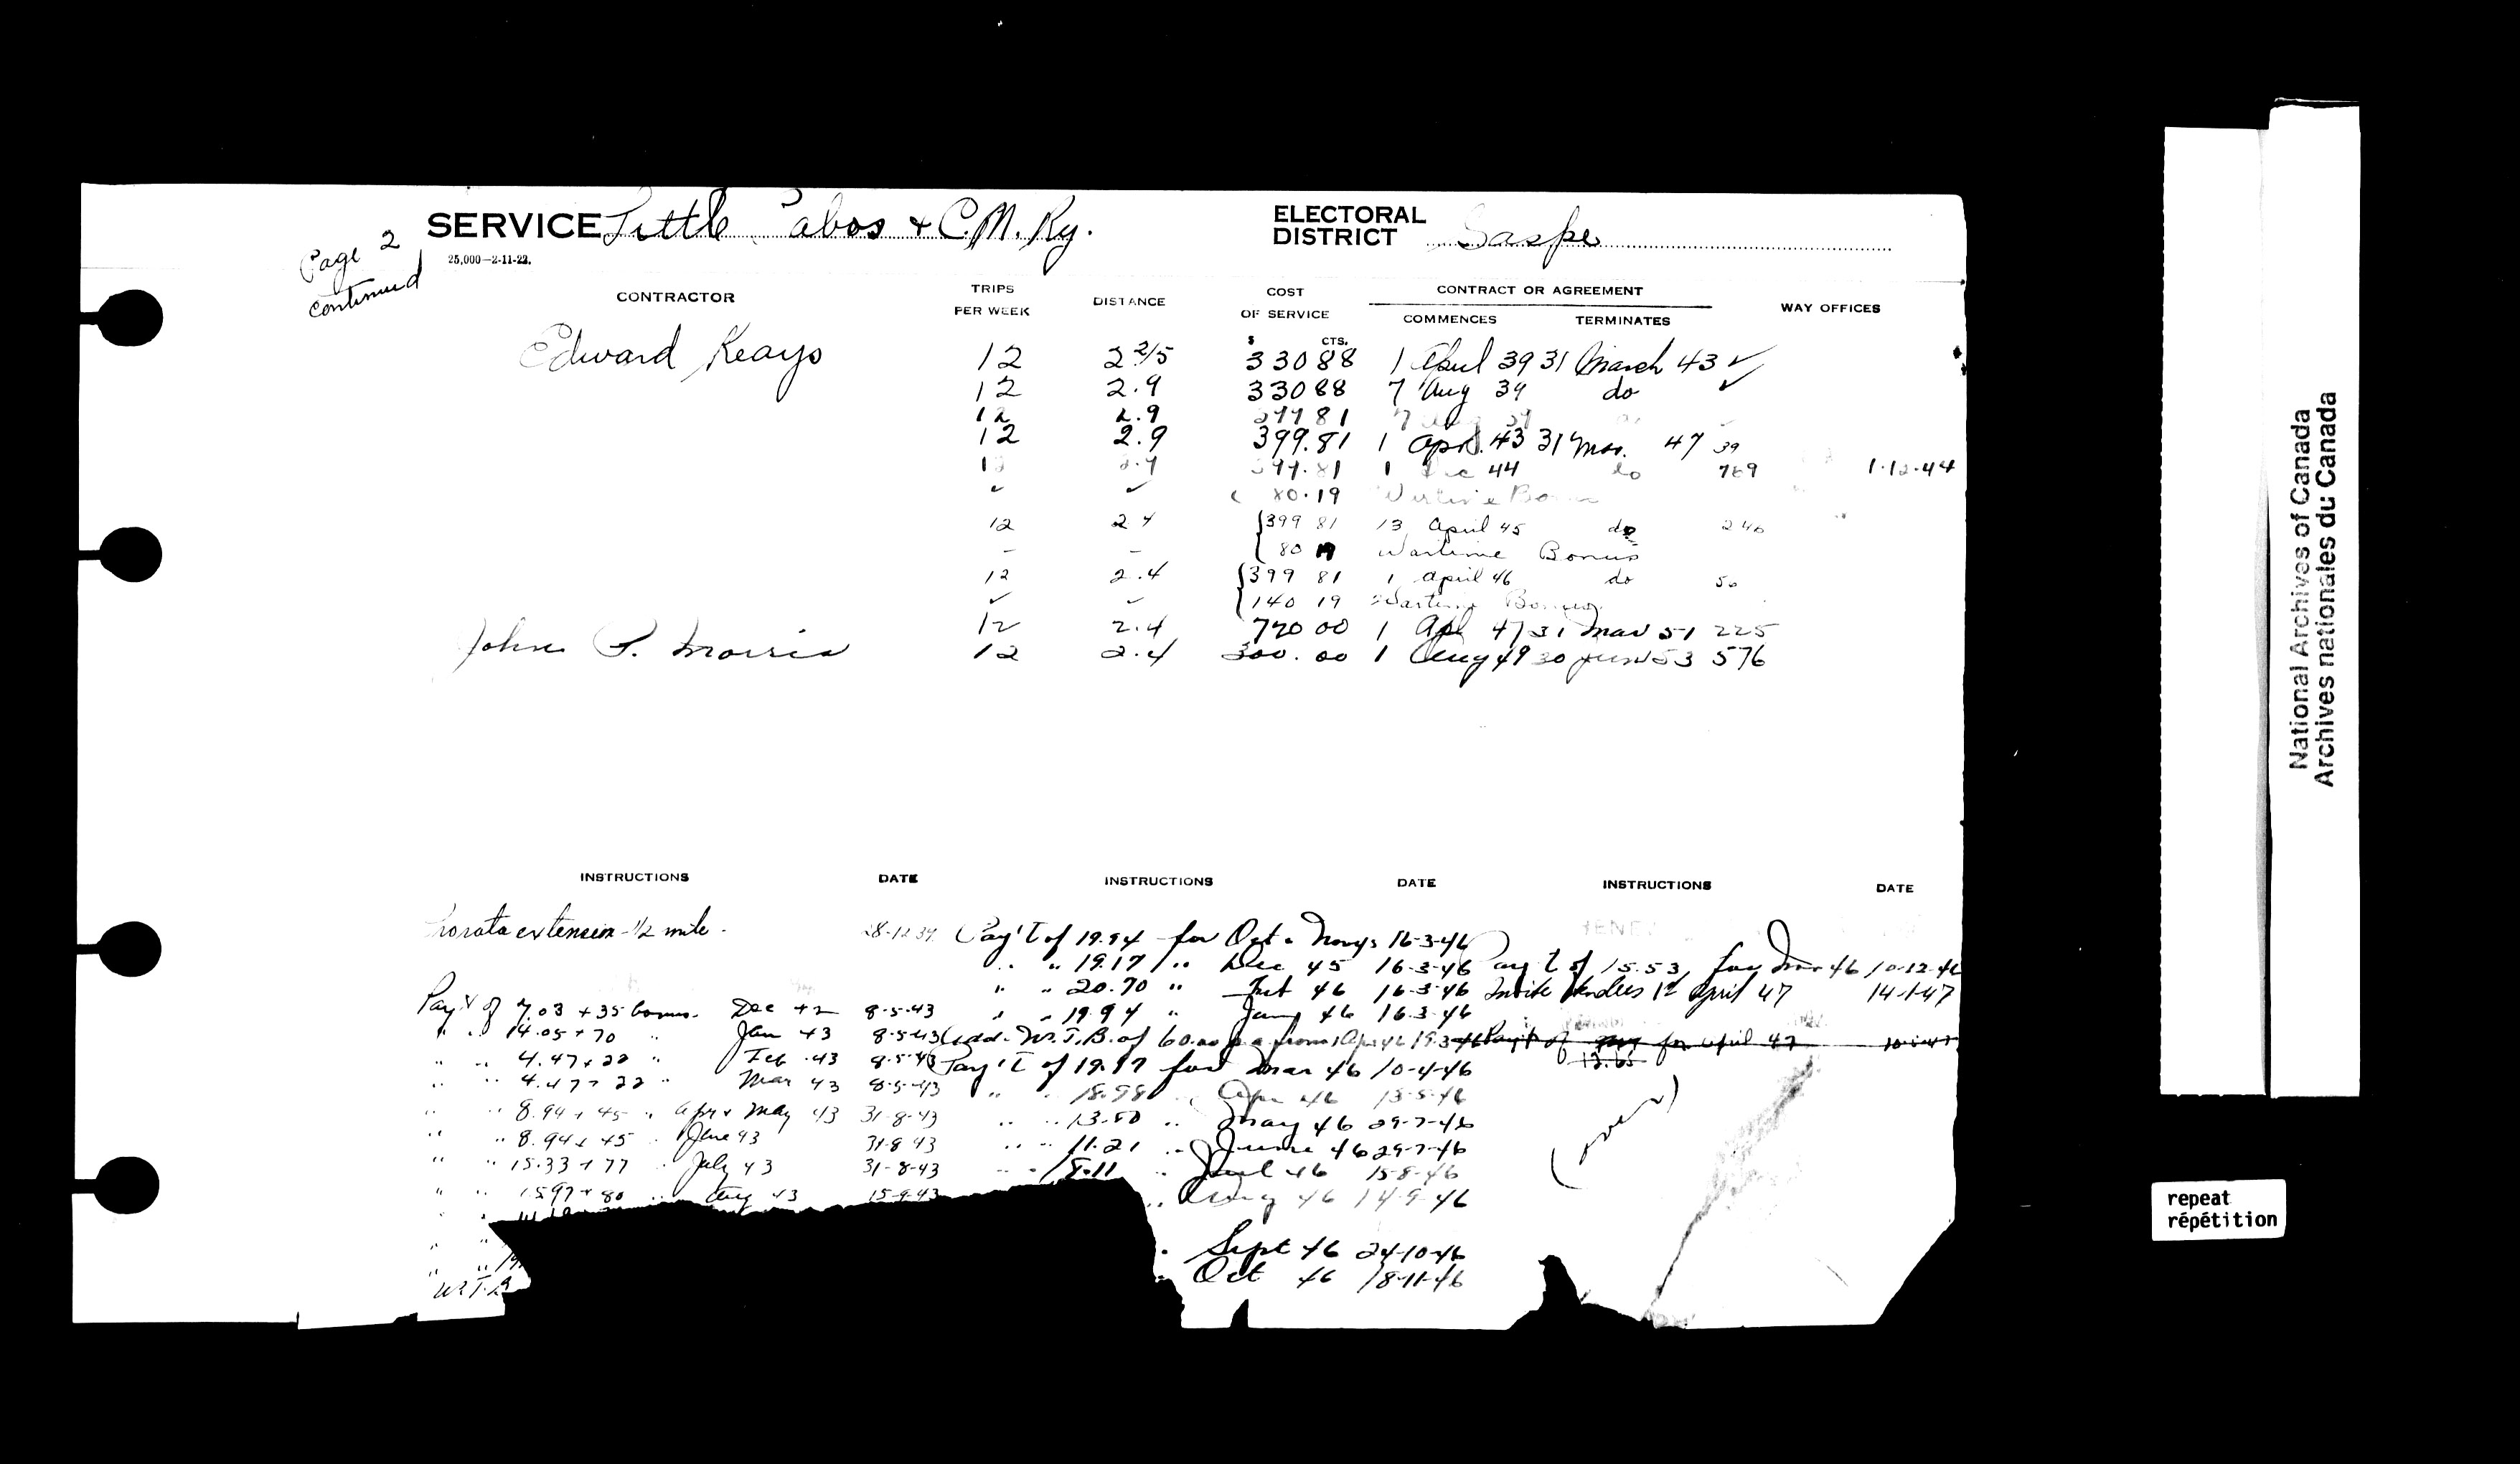 SERVICE Little Pabos & C.M. Ry.
ELECTORAL DISTRICT Gaspe
25,000—2-11-22.
Page 2
continued
CONTRACTOR
TRIPS PER WEEK
DISTANCE
COST OF SERVICE
CONTRACT OR AGREEMENT
COMMENCES TERMINATES
WAY OFFICES
$ CTS.
Edward Keays 12 2 2/5 330 88 1 April 39 31 March 43 ✓
12 2.9 330 88 7 Aug 39 do ✓
12 2.9 81 7 Aug 39
12 2.9 399.81 1 Apr. 43 31 Mar. 47 39
81 1 Dec 44 do 769 1-12-44
✓ ✓ 80.19 Wartime Bonus
12 2 4 {399 81 13 April 45 do 240
- - 80 19 Wartime Bonus
12 2.4 {399 81 1 April 46 do 50
✓ - 140 19 Wartime Bonus
12 2.4 720 00 1 Apl 47 31 Mar 51 225
John P. Morris 12 2.4 300.00 1 Aug 49 30 June 53 576
INSTRUCTIONS DATE INSTRUCTIONS DATE INSTRUCTIONS DATE
Prorata extension 1/2 mile. 28-12-39
Pay't of 7.03 + 35 bonus. Dec 42 8-5-43
" " 14.05 + 70 " Jan 43 8-5-43
" " 4.47 + 22 " Feb. 43 8-5-43
" " 4.47 + 22 " Mar 43 8-5-43
" " 8.94 + 45 " Apr & May 43 31-8-43
" " 8.94 + 45 " June 43 31-8 43
" " 15.33 + 77 " July 43 31-8-43
" " 15.97 + 80 " Aug 43 15-9-43
" "
" "
" "
W.T.B
Pay't of 19.94 for Oct & Nov 16-3-46
" " 19.17 " Dec 45 16-3-46
" " 20.70 " 46 16-3-46
" " 19.94 " Jany 46 16.3-46
add. W.T.B. of 60.00 p a from 1 Apr 46 19.3-46
Pay't of 19.17 for Mar 46 10-4-46
" " 18.98 " Apr 46 13-5-46
" " 13.80 " May 46 29-7-46
" " 11.21 " June 46 29-7-46
" " 18.11 " Jul 46 15-8-46
" Aug 46 14-9-46
" Sept 46 24-10-46
" Oct 46 18-11-46
Pay't of 15.53 for Nov 46 10-12-46
Invite tenders 1st April 47 14-1-47
Pay't of for April 47
13.65
(over)
National Archives of Canada
Archives nationales du Canada
repeat
répétition